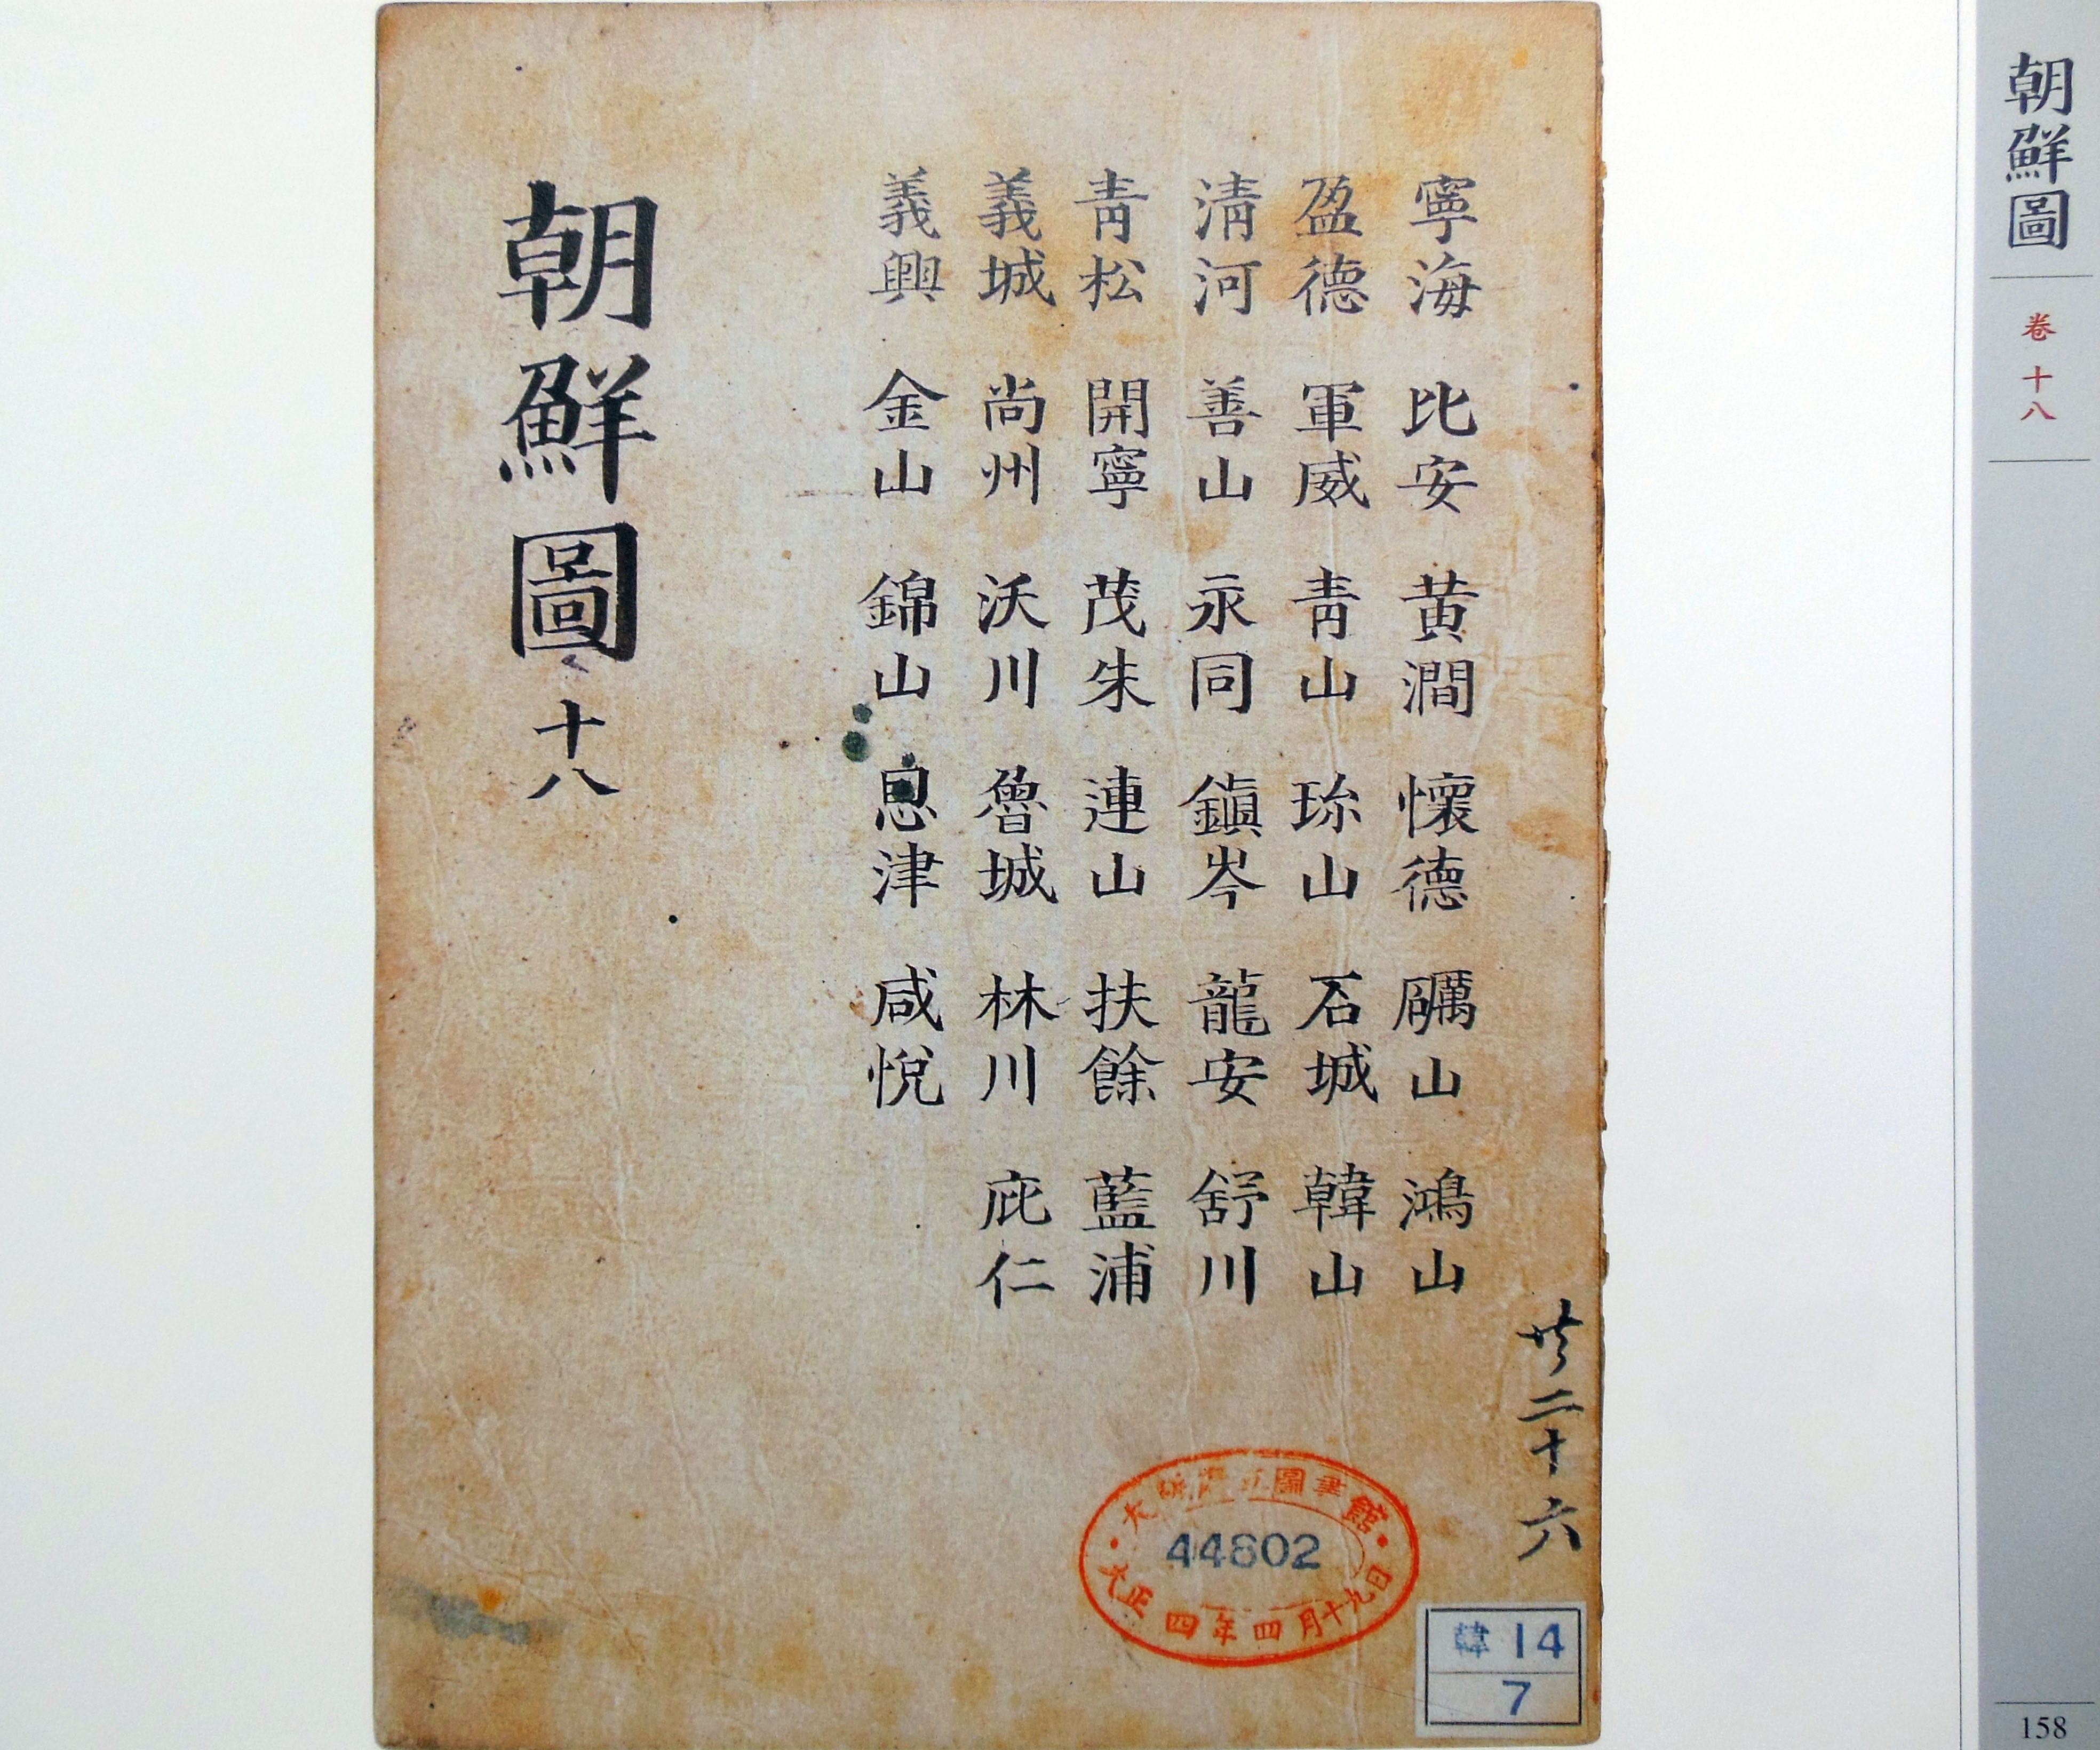 朝鮮圖
卷 十八
158
寧海 比安 黃澗 懷德 礪山 鴻山
盈德 軍威 靑山 珎山 石城 韓山
淸河 善山 永同 鎭岑 龍安 舒川
靑松 開寧 茂朱 連山 扶餘 藍浦
義城 尙州 沃川 魯城 林川 庇仁
義興 金山 錦山 恩津 咸悅
朝鮮圖 十八
共二十六
大阪府立圖書館
44802
大正四年四月十九日
韓 14
7